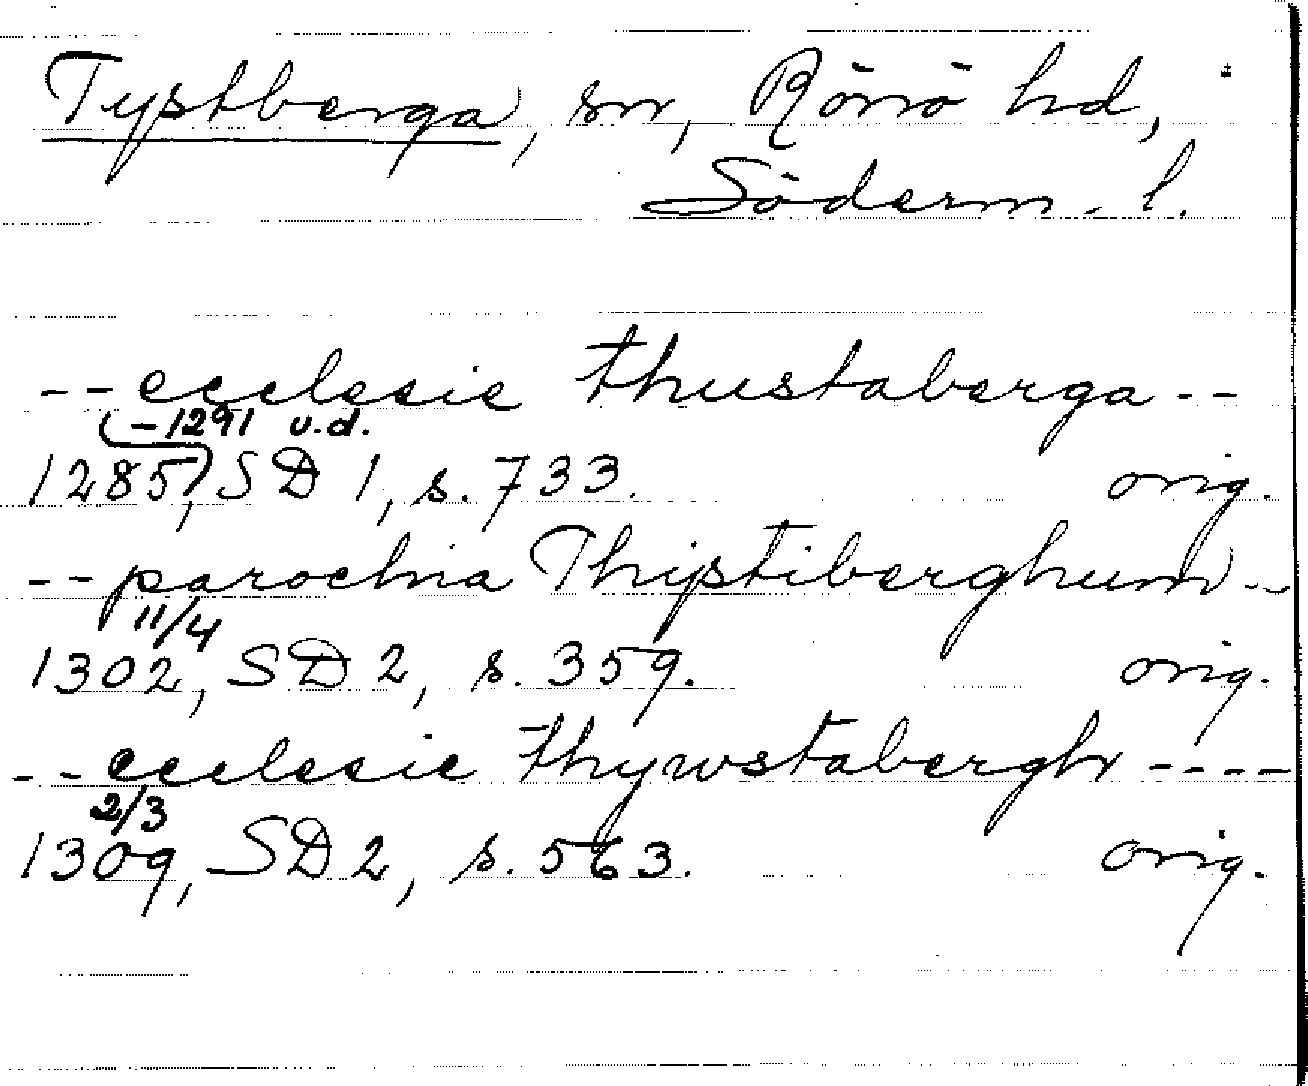 Tystberga, sn, Rönö hd,
Söderm. l.
-- ecclesie thustaberga --
(-1291 u.d.
1285), SD 1, s. 733. orig.
-- parochia Thystiberghum --
11/4
1302, SD 2, s. 359. orig.
-- ecclesie thywstabergh ----
2/3
1309, SD 2, s. 563. orig.